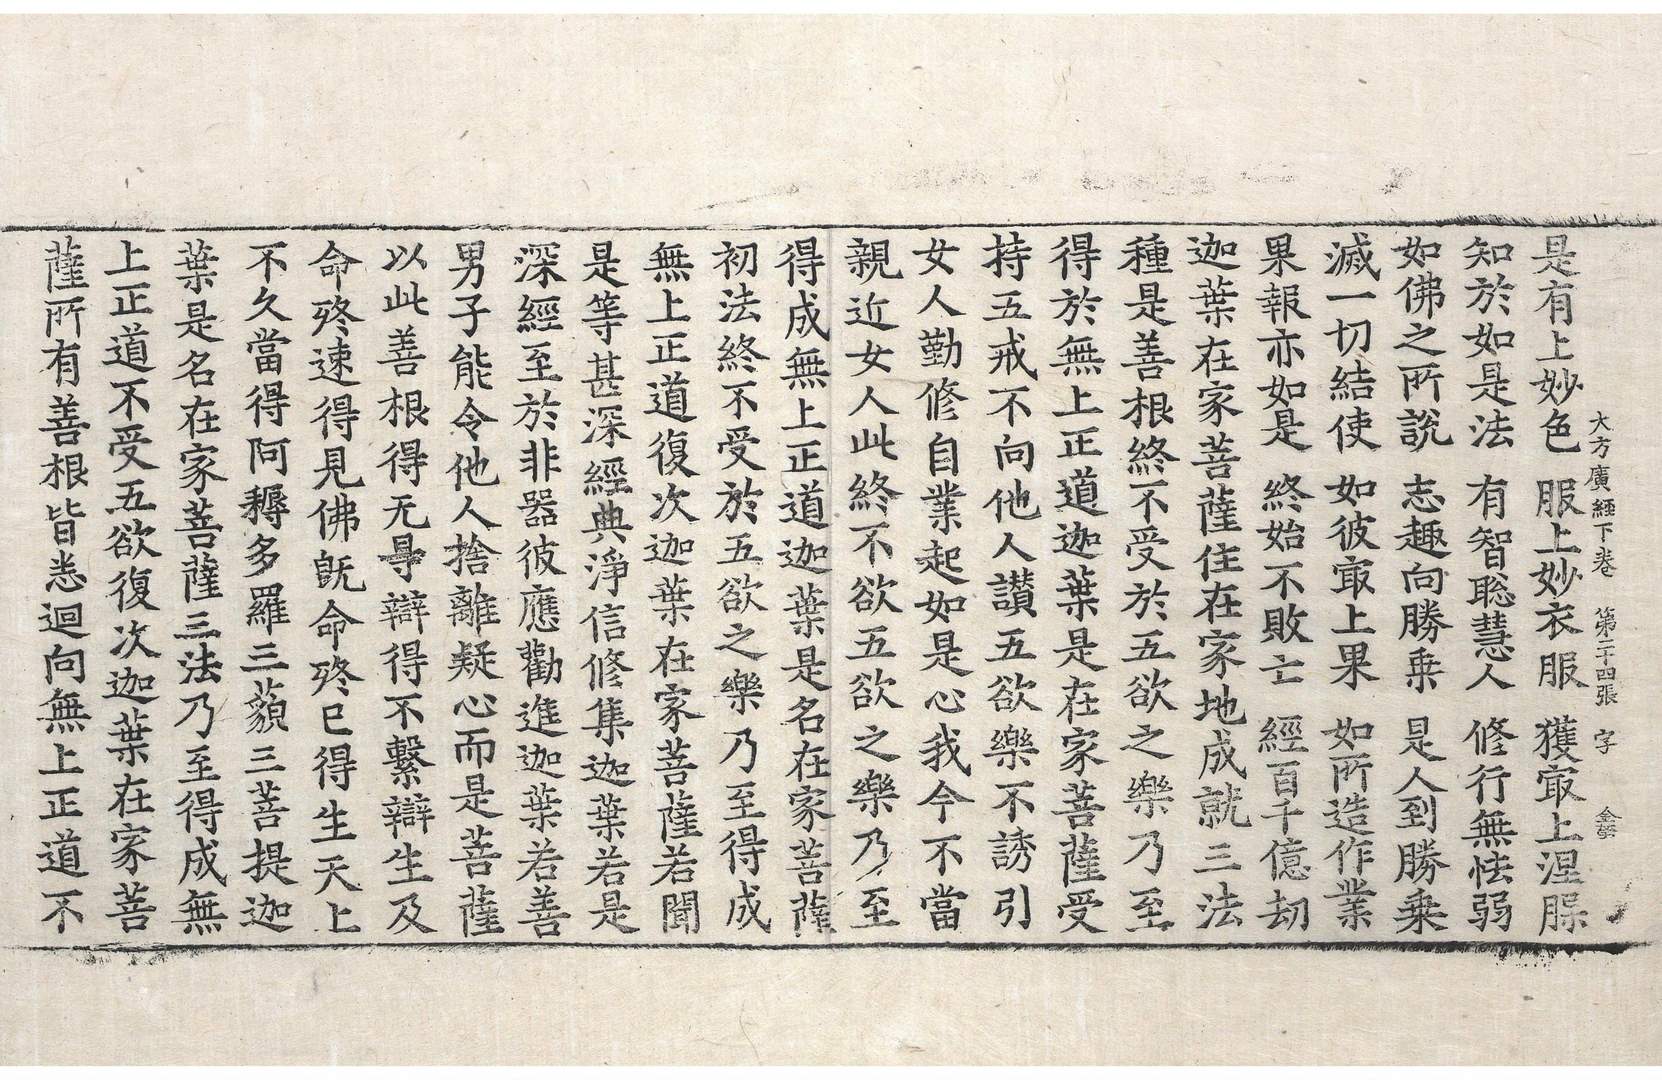 大方廣經下卷 第二十四張 字 金
是有上妙色 服上妙衣服 獲㝡上涅
知於如是法 有智聡慧人 修行無怯弱
如佛之所說 志趣向勝乗 是人到勝乗
滅一切結使 如彼㝡上果 如所造作業
果報亦如是 終始不敗亡 經百千億劫
迦葉在家菩薩住在家地成就三法
種是善根終不受於五欲之樂乃至
得於無上正道迦葉是在家菩薩受
持五戒不向他人讃五欲樂不誘引
女人勤修自業起如是心我今不當
親近女人此終不欲五欲之樂乃至
得成無上正道迦葉是名在家菩薩
初法終不受於五欲之樂乃至得成
無上正道復次迦葉在家菩薩若聞
是等甚深經典淨信修集迦葉若是
深經至於非器彼應勸進迦葉若善
男子能令他人捨離疑心而是菩薩
以此善根得无㝵辯得不繫辯生及
命終速得見佛既命終已得生天上
不久當得阿耨多羅三藐三菩提迦
葉是名在家菩薩三法乃至得成無
上正道不受五欲復次迦葉在家菩
薩所有善根皆悉迴向無上正道不